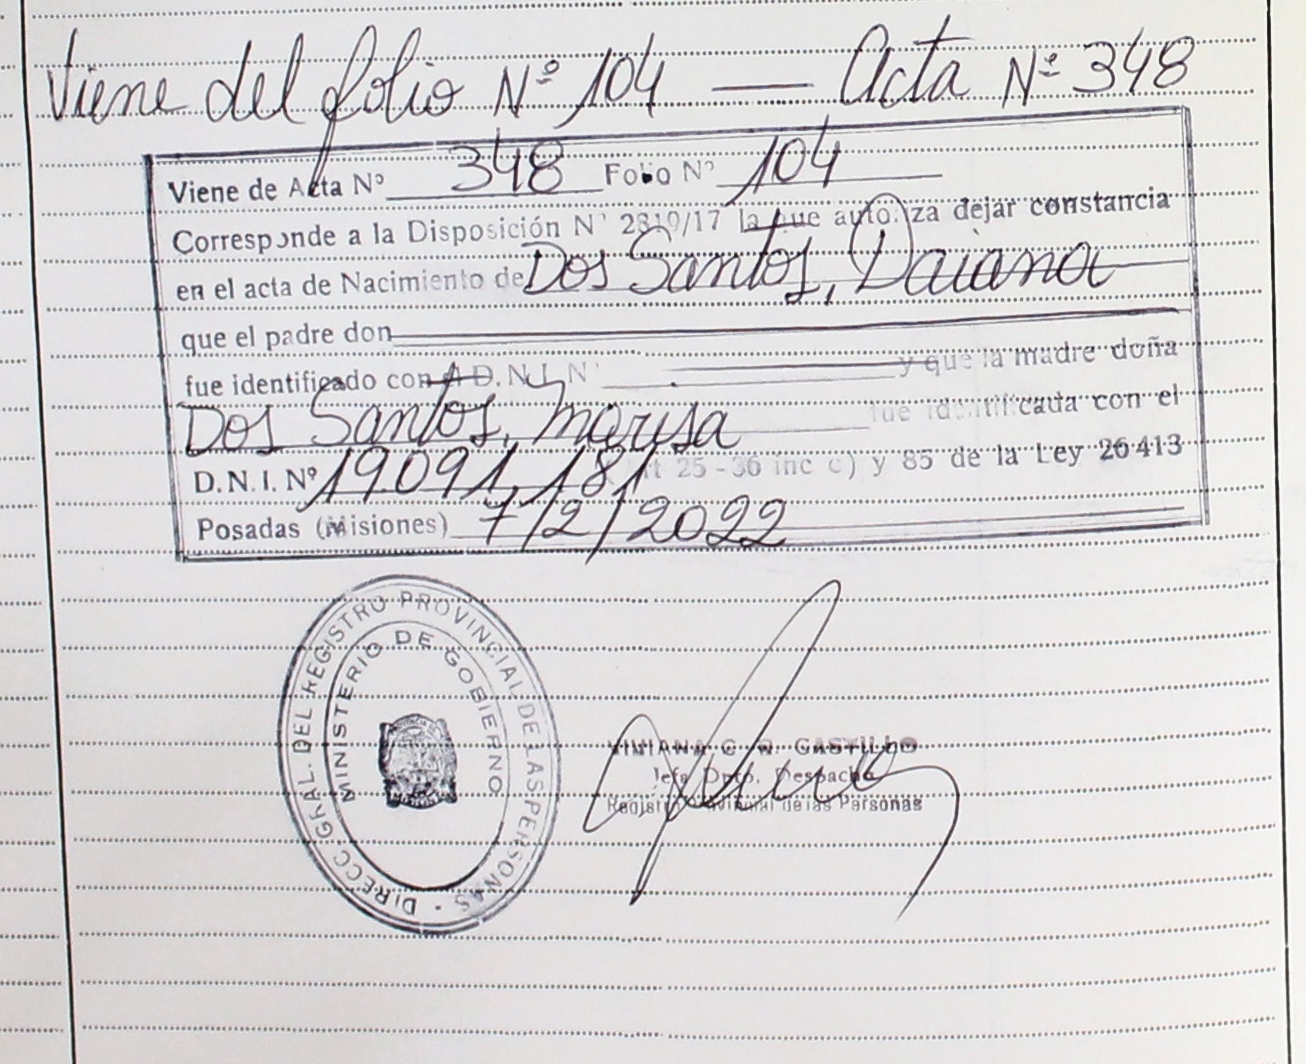 Viene del folio Nº 104 — Acta Nº 348
Viene de Acta Nº 348 Folio Nº 104
Corresponde a la Disposición Nº 2819/17 la que autoriza dejar constancia
en el acta de Nacimiento de Dos Santos, Daiana
que el padre don
fue identificado con D.N.I. Nº y que la madre doña
Dos Santos, Marisa fue identificada con el
D.N.I. Nº 19091,181 Art 25-36 inc c) y 85 de la Ley 26413
Posadas (Misiones) 7/2/2022
DIRECC GRAL. DEL REGISTRO PROVINCIAL DE LAS PERSONAS
MINISTERIO DE GOBIERNO
VIVIANA C. R. CASTILLO
Jefa Dpto. Despacho
Registro Provincial de las Personas